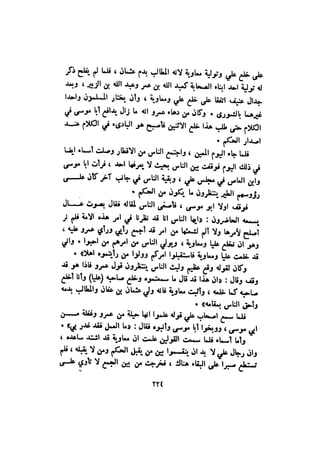 على خلع علي وتولية معاوية لانه المطالب بدم عثمان ، فلما لم يفلح ذكر
له تولية احد ابناء الصحابة كعبد الله بن عمر وعبد الله بن الزبير ، وبعد
جدال عنيف اتفقا على خلع علي ومعاوية ، وأن يختار المسلمون واحدا
غيرهما بالشورى . وكان من دهاء عمرو انه ما زال يدافع أبا موسى في
الكلام حتى طلب هذا خلع الاثنين فأصبح هو البادىء في الكلام عند
اصدار الحكم .
فلما جاء اليوم المعين ، واجتمع الناس من الاقطار وصلت أسماء ايضا
في ذلك اليوم فوقفت بين الناس بحيث لا يعرفها احد ، فرأت ابا موسى
وابن العاص في مجلس علي ، وبقية الناس في جانب آخر كأن على
رؤوسهم الطير ينتظرون ما يكون من الحكم .
فوقف اولا ابو موسى ، فأصغى الناس لمقاله فقال بصوت عال
يسمعه الحاضرون : «ايها الناس انا قد نظرنا في امر هذه الامة فلم نر
اصلح لامرها ولا ألم لشعثها من امر قد أجمع رأيي ورأي عمرو عليه ،
وهو ان نخلع عليا ومعاوية ، ويولي الناس من امرهم من احبوا . واني
قد خلعت عليا ومعاوية فاستقبلوا امركم وولوا من رأيتموه اهلا»
وكان لقوله وقع عظيم ولبث الناس ينتظرون قول عمرو فاذا هو قد
وقف وقال : «ان هذا قد قال ما سمعتموه وخلع صاحبه (عليا) وأنا أخلع
صاحبه كما خلعه ، وأثبت معاوية فانه ولي عثمان بن عفان والمطالب بدمه
وأحق الناس بمقامه» .
فلما سمع اصحاب علي قوله علموا انها حيلة من عمرو وغفلة من
ابي موسى ، ووبخوا أبا موسى وأنبوه فقال : «ما العمل فقد غدر بي» .
وأما أسماء فلما سمعت القولين علمت ان معاوية قد اشتد ساعده ،
وان رجال علي لا بد ان ينقسموا بين من يقبل الحكم ومن لا يقبله ، فلم
تستطع صبرا على البقاء هناك ، فخرجت من بين الجمع لا تأوي على
٢٣٤